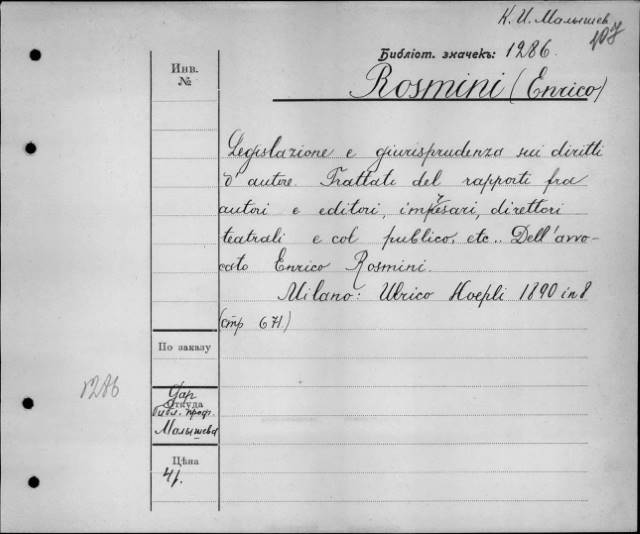 К. И. Малышев
107
Библіот. значекъ: 1286.
Инв.
№
Rosmini (Enrico)
Legislazione e giurisprudenza sui diritti
d'autore. Trattati del rapporti fra
autori e editori, impresari, direttori
teatrali e col publico, etc.. Dell'avvo-
cato Enrico Rosmini.
Milano: Ulrico Hoepli 1890 in 8
(стр 671.)
По заказу
1286
Дар
Откуда
библ. проф.
Малышева
Цѣна
4р.